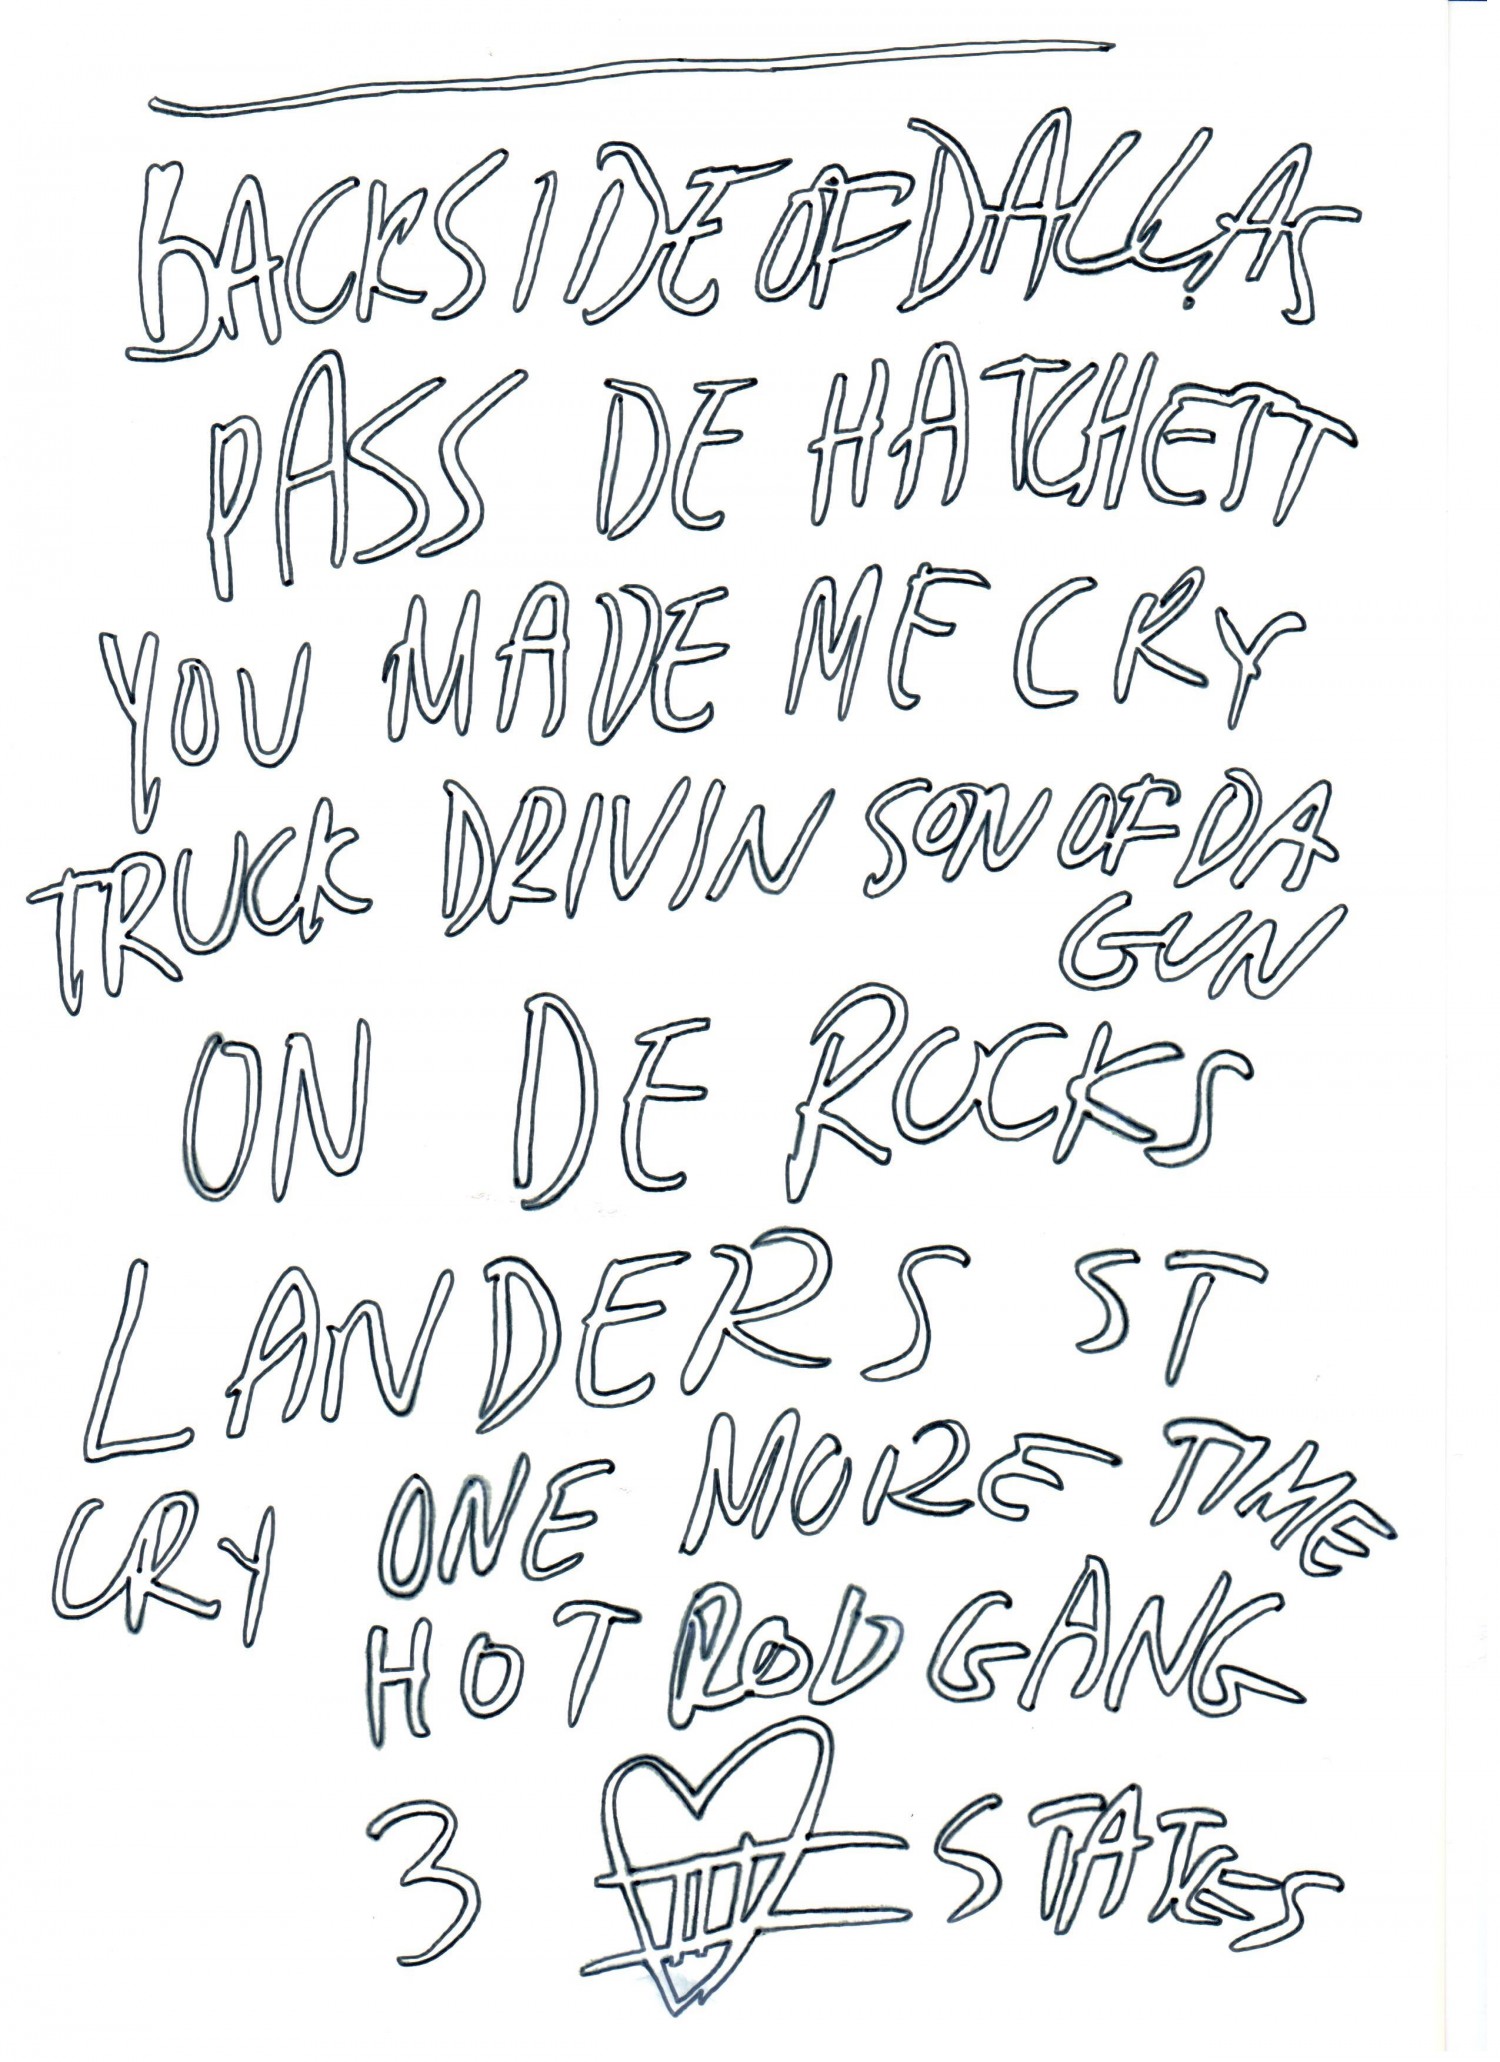 BACKSIDE OF DALLAS
PASS DE HATCHETT
YOU MADE ME CRY
TRUCK DRIVIN SON OF DA
GUN
ON DE ROCKS
LANDERS ST
CRY ONE MORE TIME
HOT ROD GANG
3 STATES